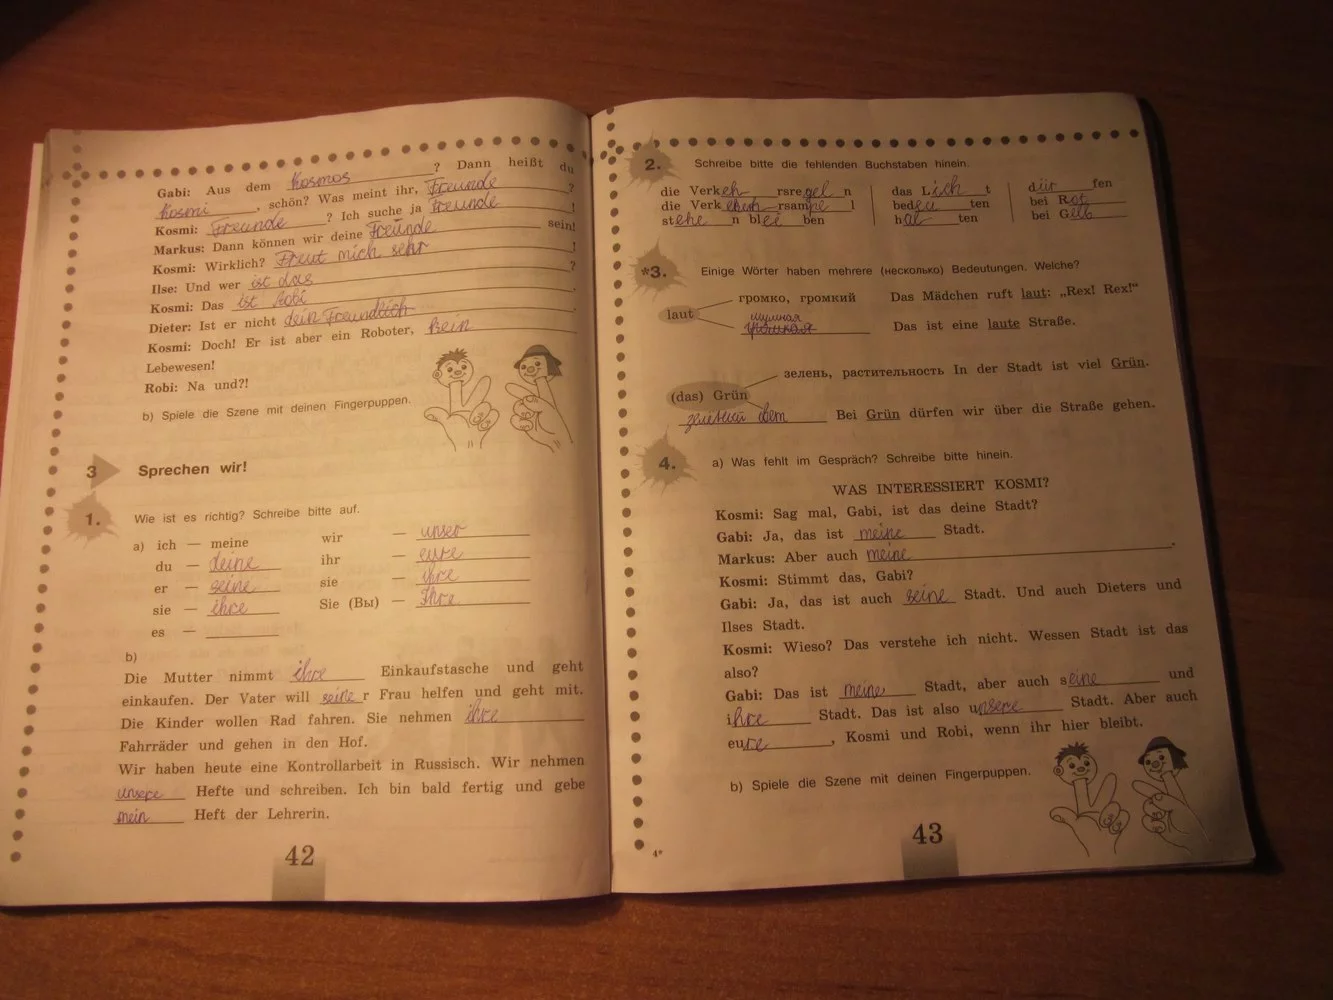 Gabi: Aus dem Kosmos ? Dann heißt du
Kosmi , schön? Was meint ihr, Freunde ?
Kosmi: Freunde ? Ich suche ja Freunde !
Markus: Dann können wir deine Freunde sein!
Kosmi: Wirklich? Freut mich sehr !
Ilse: Und wer ist das ?
Kosmi: Das ist Robi .
Dieter: Ist er nicht dein Freund
Kosmi: Doch! Er ist aber ein Roboter, kein
Lebewesen!
Robi: Na und?!
b) Spiele die Szene mit deinen Fingerpuppen.
3 Sprechen wir!
1. Wie ist es richtig? Schreibe bitte auf.
a) ich — meine wir — unser
du — deine ihr — eure
er — seine sie — ihre
sie — ihre Sie (Вы) — Ihre
es —
b)
Die Mutter nimmt ihre Einkaufstasche und geht
einkaufen. Der Vater will seine r Frau helfen und geht mit.
Die Kinder wollen Rad fahren. Sie nehmen ihre
Fahrräder und gehen in den Hof.
Wir haben heute eine Kontrollarbeit in Russisch. Wir nehmen
unsere Hefte und schreiben. Ich bin bald fertig und gebe
mein Heft der Lehrerin.
42
2. Schreibe bitte die fehlenden Buchstaben hinein.
die Verkeh rsre gel n das Lich t dür fen
die Verk rsampe l bedeu ten bei Rot
stehe n blei ben hal ten bei Gelb
*3. Einige Wörter haben mehrere (несколько) Bedeutungen. Welche?
громко, громкий Das Mädchen ruft laut: „Rex! Rex!“
laut шумная
Das ist eine laute Straße.
зелень, растительность In der Stadt ist viel Grün.
(das) Grün
зелёный свет Bei Grün dürfen wir über die Straße gehen.
4. a) Was fehlt im Gespräch? Schreibe bitte hinein.
WAS INTERESSIERT KOSMI?
Kosmi: Sag mal, Gabi, ist das deine Stadt?
Gabi: Ja, das ist meine Stadt.
Markus: Aber auch meine .
Kosmi: Stimmt das, Gabi?
Gabi: Ja, das ist auch seine Stadt. Und auch Dieters und
Ilses Stadt.
Kosmi: Wieso? Das verstehe ich nicht. Wessen Stadt ist das
also?
Gabi: Das ist meine Stadt, aber auch seine und
ihre Stadt. Das ist also unsere Stadt. Aber auch
eure , Kosmi und Robi, wenn ihr hier bleibt.
b) Spiele die Szene mit deinen Fingerpuppen.
4*
43